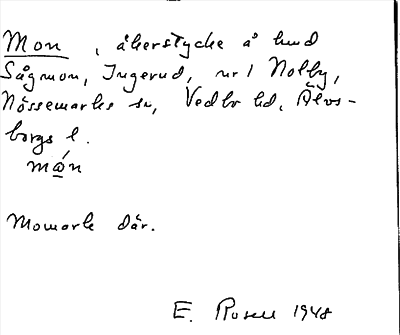 Mon, åkerstycke å lund
Sågmon, Ingerud, nr 1 Nolby,
Nössemarks sn, Vedbo hd, Älvs-
borgs l.
mǻn
Momark där.
E. Rosell 1948